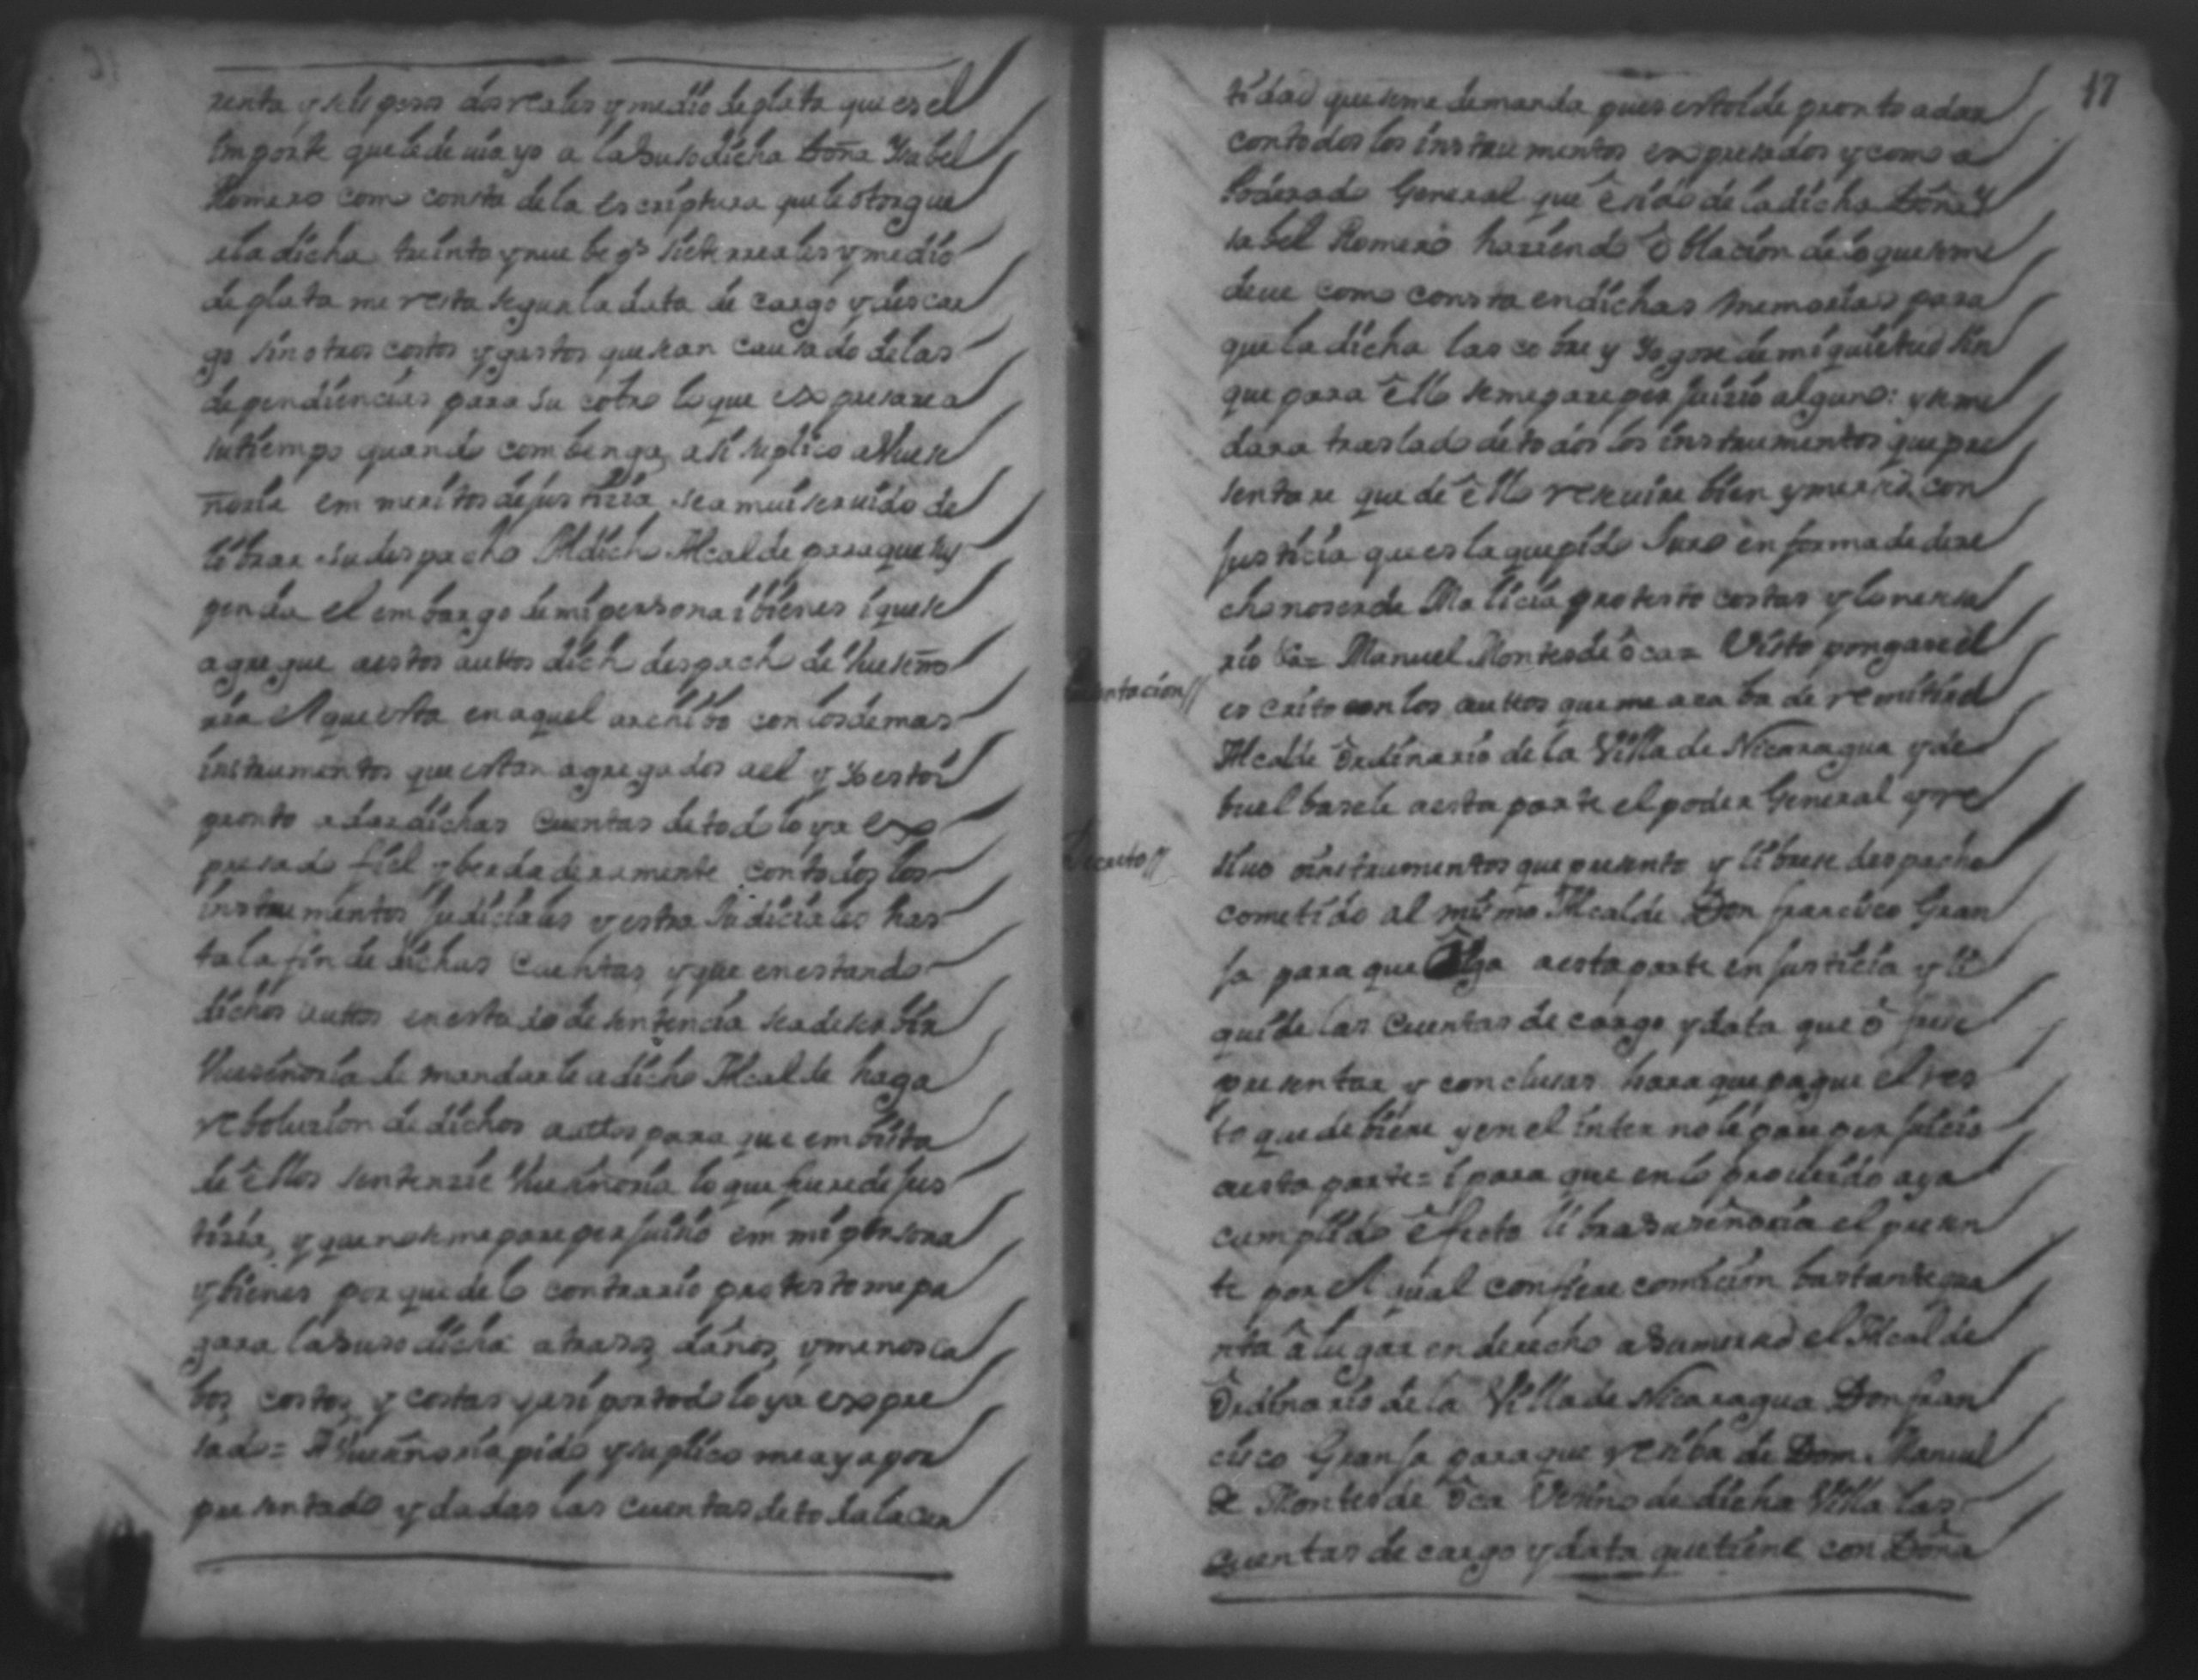 renta y seis pesos dos reales y medio de plata que es el
Importe que le deuia yo a la susodicha Doña Ysabel
Romero como consta de la escriptura que le otorgue
i la dicha treinta y nuebe ps siete rreales y medio
de plata me resta segun la data de cargo y descar
go sin otros costos y gastos que sean causado de las
dependiencias para su cobro lo que expresare a
su tiempo quando combenga, assi suplico a Vuse
ñoria em meritos de justizia sea mui seruido de
librar su despacho Al dicho Alcalde para que sus
penda el embargo de mi persona i bienes i que se
agregue a estos auttos dich despach de Vuseño
ria Al que esta en aquel archibo con los demas
instrumentos que estan agregados a el y yo estoi
pronto a dar dichas Cuentas de todo lo ya ex
presado fiel y berdaderamente con todos los
instrumentos Judiciales y estra Judiciales has
ta la fin de dichas Cuentas, y que en estando
dichos auttos en estado de sentencia sea de serbir
Vuseñoria de mandarle a dicho Alcalde haga
reboluzion de dichos auttos para que em bista
de êllos sentenzie Vuseñoria lo que fuere de jus
tizia, y que no se me pare perjuisio em mi persona
y bienes porque de lo contrario protesto me pa
gara la susodicha atrasos, daños, y menosca
bos, costos, y costas y asi por todo lo ya expre
sado = A Vuseñoria pido y suplico me aya por
presentado y dadas las cuentas de toda la can
17
tidad que se me demanda pues estoi de pronto a dar
con todos los instrumentos expresados y como a
Poderado General que ê sido de la dicha Doña Y
sabel Romero haziendo ôblacion de lo que se me
deue como consta en dichas memorias para
que la dicha las cobre y yo gose de mi quietud sin
que para êllo se me pare perjuizio alguno: y se me
dara traslado de todos los instrumentos que pre
sentare que de êllo resiuire bien y merzed con
Justicia que es la que pido Juro en forma de dere
cho no ser de Malicia protesto costas y lo nesesa
rio &a = Manuel Montes de ôca = Visto pongase el
escrito con los auttos que me acaba de remitir el
Alcalde Ordinario de la Villa de Nicaragua y de
buelbasele a esta parte el poder General y re
siuo o instrumentos que presento y librese despacho
cometido al mismo Alcalde Don francisco Gran
ja para que Oiga a esta parte en justicia y li
quide las Cuentas de cargo y data que ôfrese
presentar y conclusas hara que pague el res
to que debiere y en el inter no le pare perjuicio
a esta parte = i para que en lo proueido aya
cumplido êfecto libra su señoria el presen
te por el qual confiere comicion bastante qua
nta â lugar en derecho a su merzed el Alcalde
Ordinario de la Villa de Nicaragua Don fran
cisco Granja para que resiba de Dom. Manuel
de Montes de ôca Vesino de dicha Villa las
cuentas de cargo y data que tiene con Doña